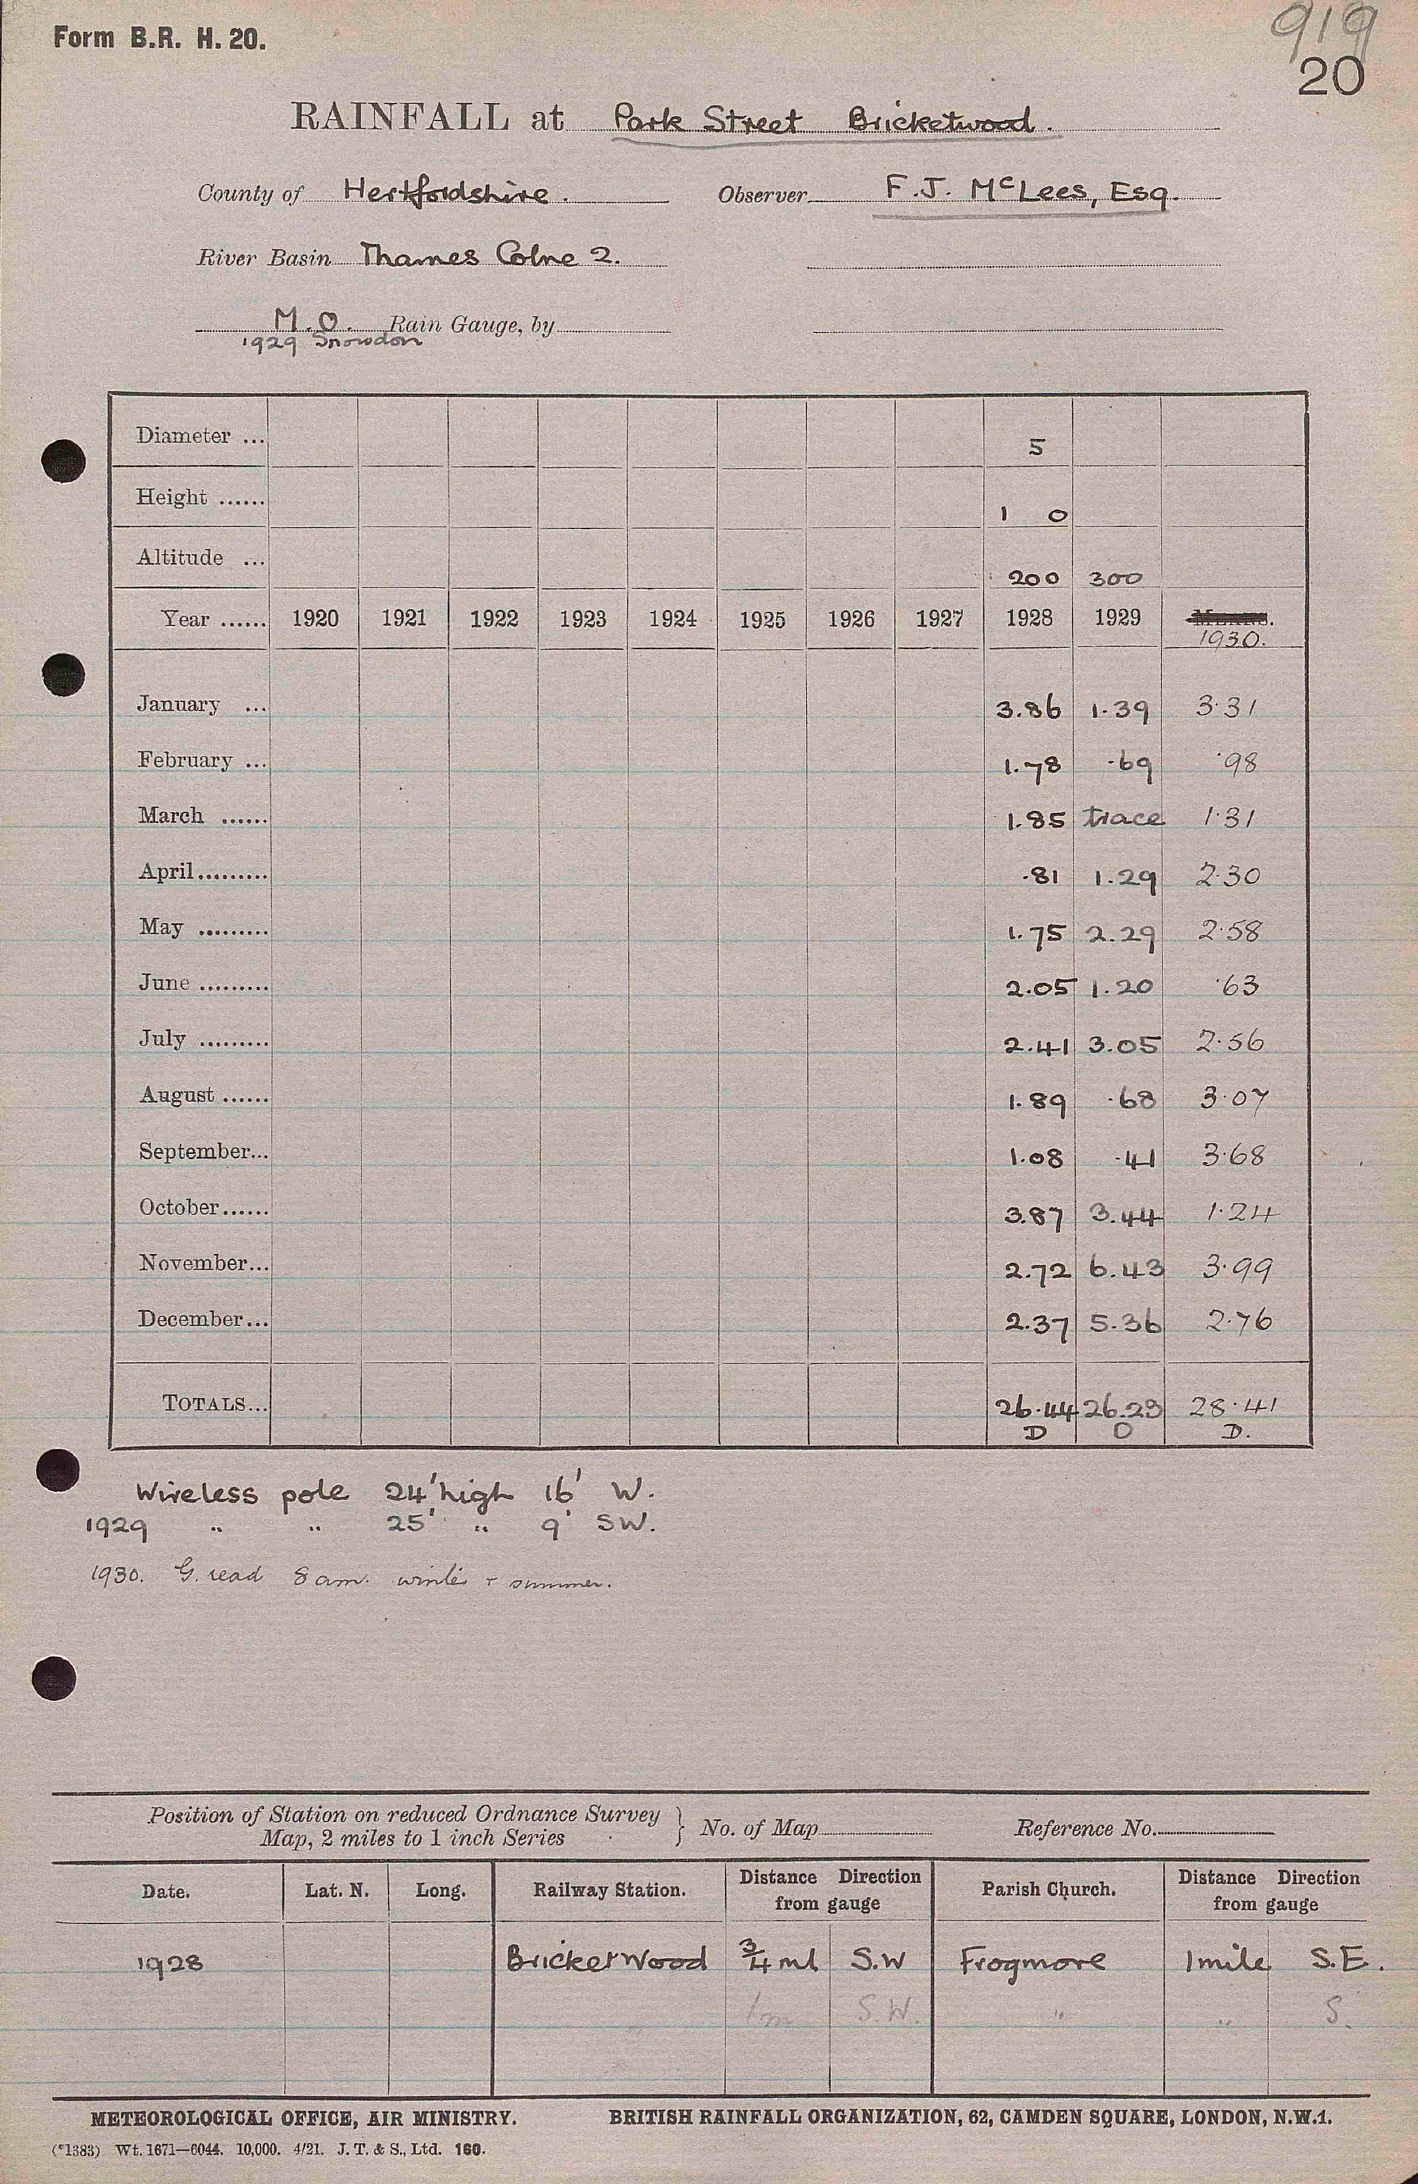 Form B.R. H. 20.
919
20
RAINFALL at Park Street Bricketwood.
County of Hertfordshire. Observer F.J. McLees, Esq.
River Basin Thames Colne 2.
M.O. Rain Gauge, by
1929 Snowdon
Diameter ... 5
Height ...... 1 0
Altitude ... 200 300
Year ...... 1920 1921 1922 1923 1924 1925 1926 1927 1928 1929 MEANS.
1930.
January ... 3.86 1.39 3.31
February ... 1.78 .69 .98
March ...... 1.85 trace 1.31
April ......... .81 1.29 2.30
May ......... 1.75 2.29 2.58
June ......... 2.05 1.20 .63
July ......... 2.41 3.05 2.56
August ...... 1.89 .68 3.07
September... 1.08 .41 3.68
October ...... 3.87 3.44 1.24
November... 2.72 6.43 3.99
December... 2.37 5.36 2.76
TOTALS... 26.44 26.23 28.41
D D D.
Wireless pole 24' high 16' W.
1929 " " 25' " 9' SW.
1930. G. read 8 am. winter + summer.
Position of Station on reduced Ordnance Survey
Map, 2 miles to 1 inch Series } No. of Map Reference No.
Date. Lat. N. Long. Railway Station. Distance Direction from gauge Parish Church. Distance Direction from gauge
1928 Bricket Wood 3/4 ml S.W Frogmore 1 mile S.E.
" 1m S.W. " " S.
METEOROLOGICAL OFFICE, AIR MINISTRY. BRITISH RAINFALL ORGANIZATION, 62, CAMDEN SQUARE, LONDON, N.W.1.
(*1383) Wt. 1671—6044. 10,000. 4/21. J. T. & S., Ltd. 160.